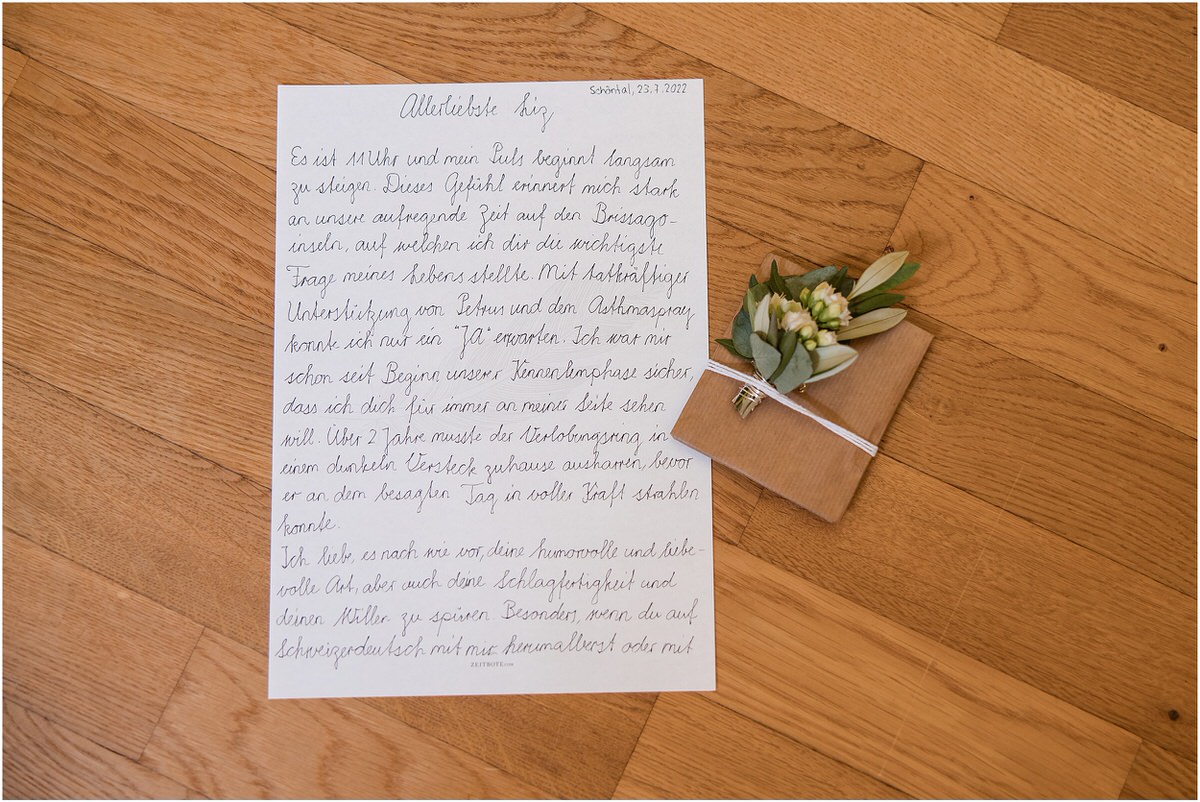 Schöntal, 23.7.2022
Allerliebste Liz
Es ist 11 Uhr und mein Puls beginnt langsam
zu steigen. Dieses Gefühl erinnert mich stark
an unsere aufregende Zeit auf den Brissago-
inseln, auf welchen ich dir die wichtigste
Frage meines Lebens stellte. Mit tatkräftiger
Unterstützung von Petrus und dem Asthmaspray
konnte ich nur ein "JA" erwarten. Ich war mir
schon seit Beginn unserer Kennenlernphase sicher,
dass ich dich für immer an meiner Seite sehen
will. Über 2 Jahre musste der Verlobungsring in
einem dunkeln Versteck zuhause ausharren, bevor
er an dem besagten Tag in voller Kraft strahlen
konnte.
Ich liebe, es nach wie vor, deine humorvolle und liebe-
volle Art, aber auch deine Schlagfertigkeit und
deinen Willen zu spüren. Besonders, wenn du auf
Schweizerdeutsch mit mir herumalberst oder mit
ZEITBOTE.com